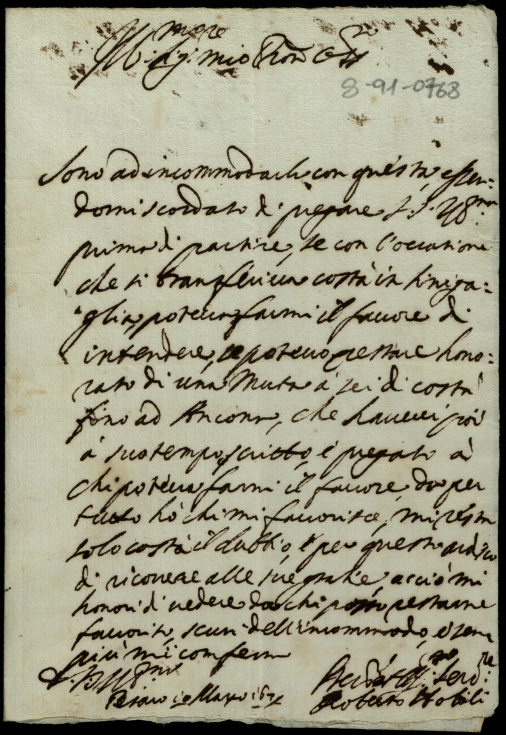 mio
8-91-0768
Sono ad incommodarla con questa essen:
domi scordato di pregare S. S. Ill.ma
prima di partire, se con l'occasione
che si transferiva costà in Siniga:
glia, poteva farmi il favore di
intendere, se potevo restare hono:
rato di una Muta à sei di costà
fino ad Ancona, che haverei poi
à suo tempo scritto, e pregato à
chi poteva farmi il favore, da per
tutto hò chi mi favorisce, mi resta
solo costà il dubbio, e per questo ardisco
di ricorrere alle sue gratie, acciò mi
honori di vedere da chi posso restarne
favorito, scusi dell'incommodo, e sem
più mi confermo
Di V. S. Ill.ma
Pesaro Marzo
Roberto Nobili